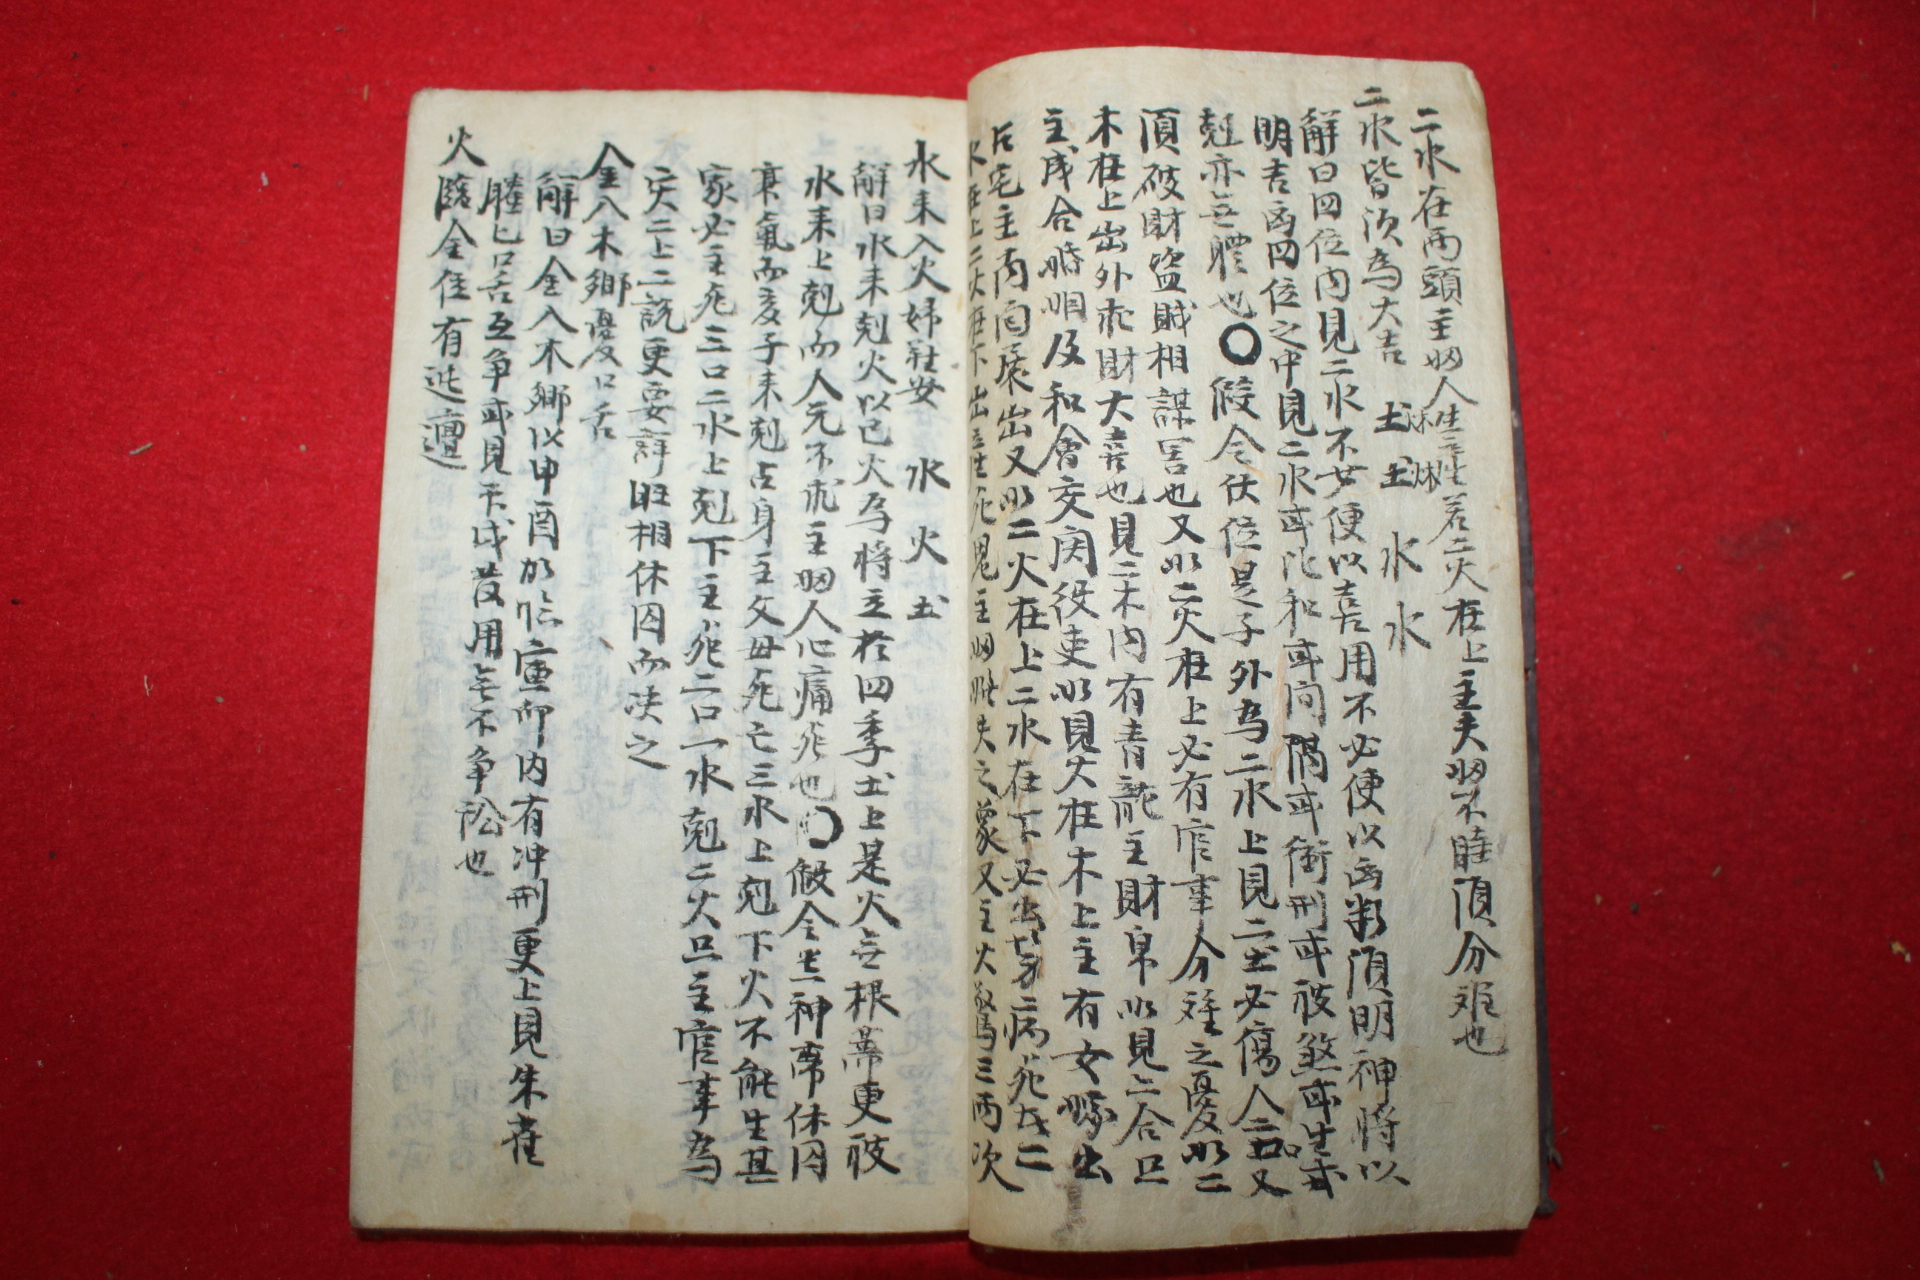 二水在兩頭主姻人生云生若二火在上主夫姻不睦須分死也
二水皆須為大吉 土水 土水 水 水
解曰四位內見二水不女便以吉用不必便以凶斷須明神將以
明吉凶四位之中見二水或比和或间隔或衝刑或被煞或生或
剋亦云體也〇假令伏位是子外為二水上見二土必傷人二口又
須破財盜賊相謀害也又如二火在上必有官事分離之憂如二
木在上出外求財大喜也見二木內有青龍主財帛如見二合只
主成合婚姻及和會交関役吏如見火在木上主有女嫁出
后宅主丙向展出又如二火在上二水在下必出勞病死亡二
水在上二火在下出云生死鬼主姻 失之象又主火驚三兩次
水来入火婦難安 水 火 土
解曰水来剋火以巳火為將主於四季土上是火無根蒂更被
水来上剋而人元不求主姻人心痛死也〇假令生神帶休囚
衰氣而亥子来剋占身主父母死亡三水上剋下火不能生甚
家必主死三口二水上剋下主死二口一水剋二火只主官事為
灾二上二説更要詳旺相休囚而决之
金入木鄉憂口舌
解曰金入木鄉以申酉加臨寅卯內有冲刑更上見朱雀
螣巳口舌互争或見天戌發用無不争訟也
火臨金位有迍邅